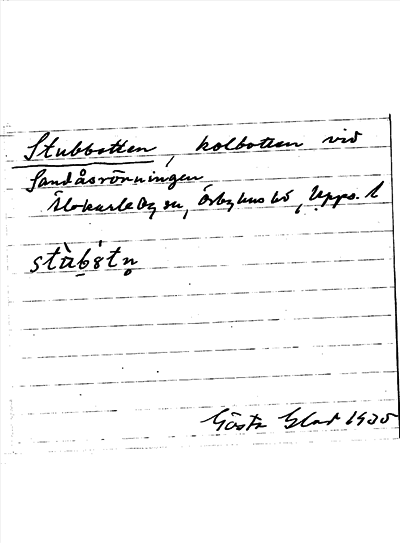 Stubbotten, kolbotten vid
Sandåsrörningen
Älvkarleby sn, Örbyhus hd, Upps. l
Gösta 1935